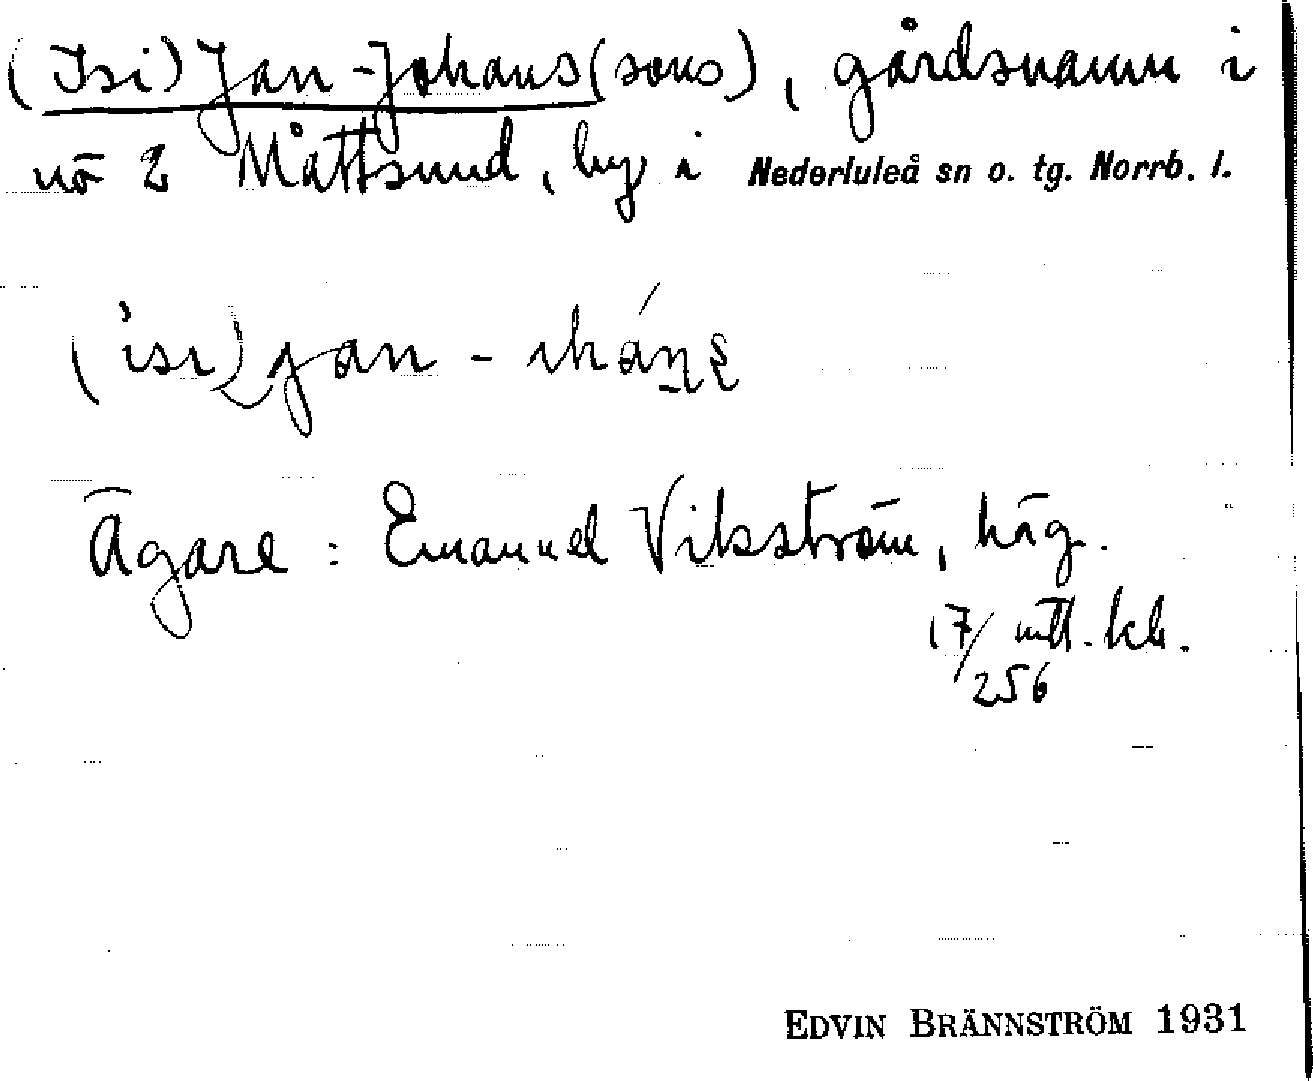 (Isi) Jan-Johans(sons), gårdsnamn i
nō 2 Måttsund, by i Nederluleå sn o. tg. Norrb. l.
(ìsı) jan -
Ägare: Emanuel Vikström, häg.
17/256 mtl. kb.
EDVIN BRÄNNSTRÖM 1931